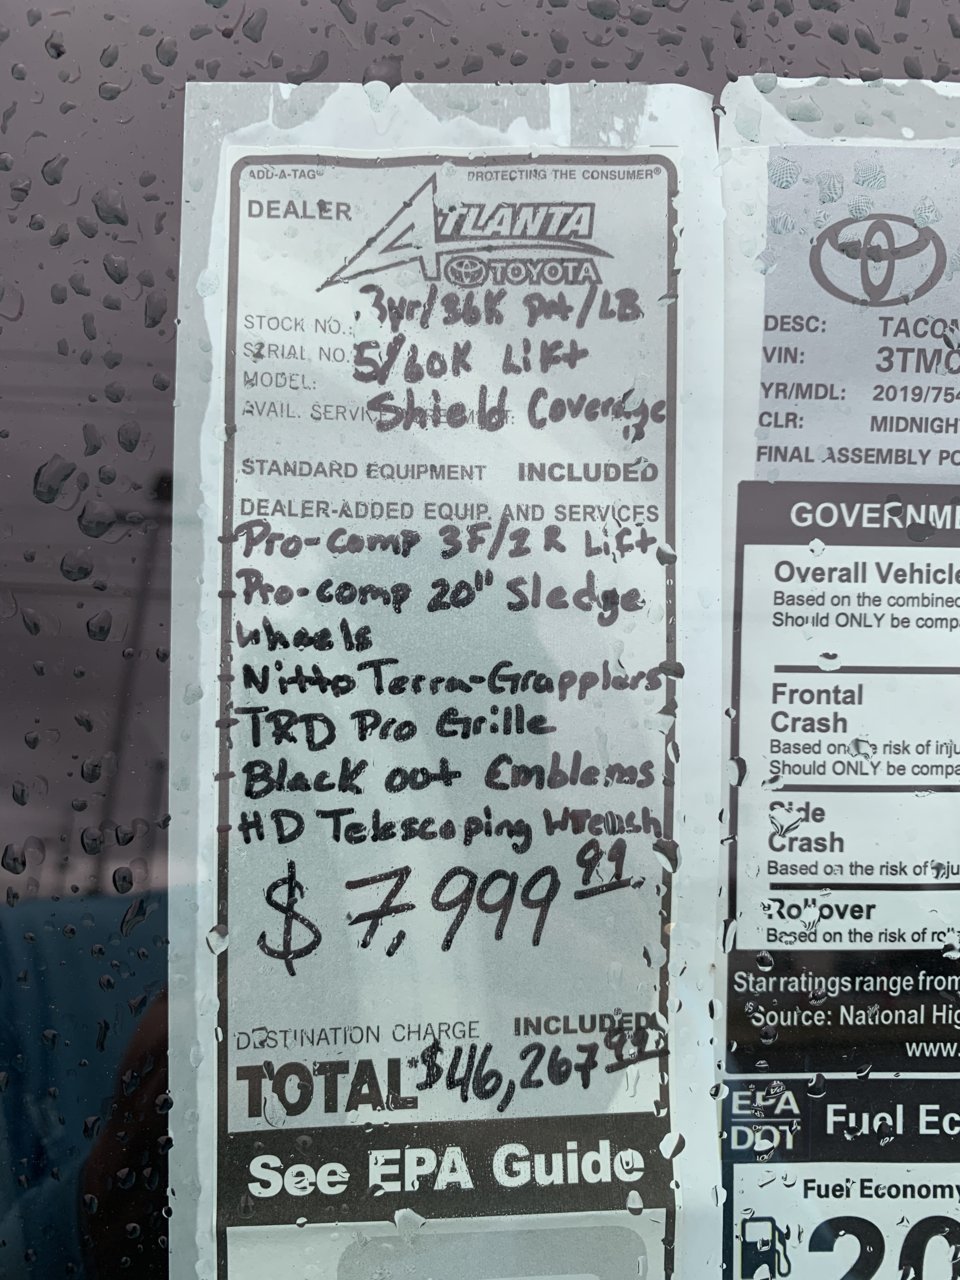 ADD-A-TAG® PROTECTING THE CONSUMER®
DEALER ATLANTA
TOYOTA
3yr/36K Pnt/LB
STOCK NO.:
SERIAL NO. 5/60K Lift
MODEL:
AVAIL. Shield Coverage
STANDARD EQUIPMENT INCLUDED
DEALER-ADDED EQUIP. AND SERVICES
-Pro-Comp 3F/2R Lift
-Pro-comp 20" Sledge
wheels
-Nitto Terra-Grapplers
-TRD Pro Grille
-Black out Emblems
-HD Telescoping Wrench
$7,999 99
DESTINATION CHARGE INCLUDED
TOTAL $46,267 99
See EPA Guide
TOYOTA
DESC: TACO
VIN: 3TMC
YR/MDL: 2019/754
CLR: MIDNIGH
FINAL ASSEMBLY PO
GOVERNME
Overall Vehicle
Based on the combined
Should ONLY be compa
Frontal
Crash
Based on the risk of inju
Should ONLY be compa
Side
Crash
Based on the risk of inju
Rollover
Based on the risk of roll
Star ratings range from
Source: National Hig
www.
EPA
DOT Fuel Ec
Fuel Economy
20